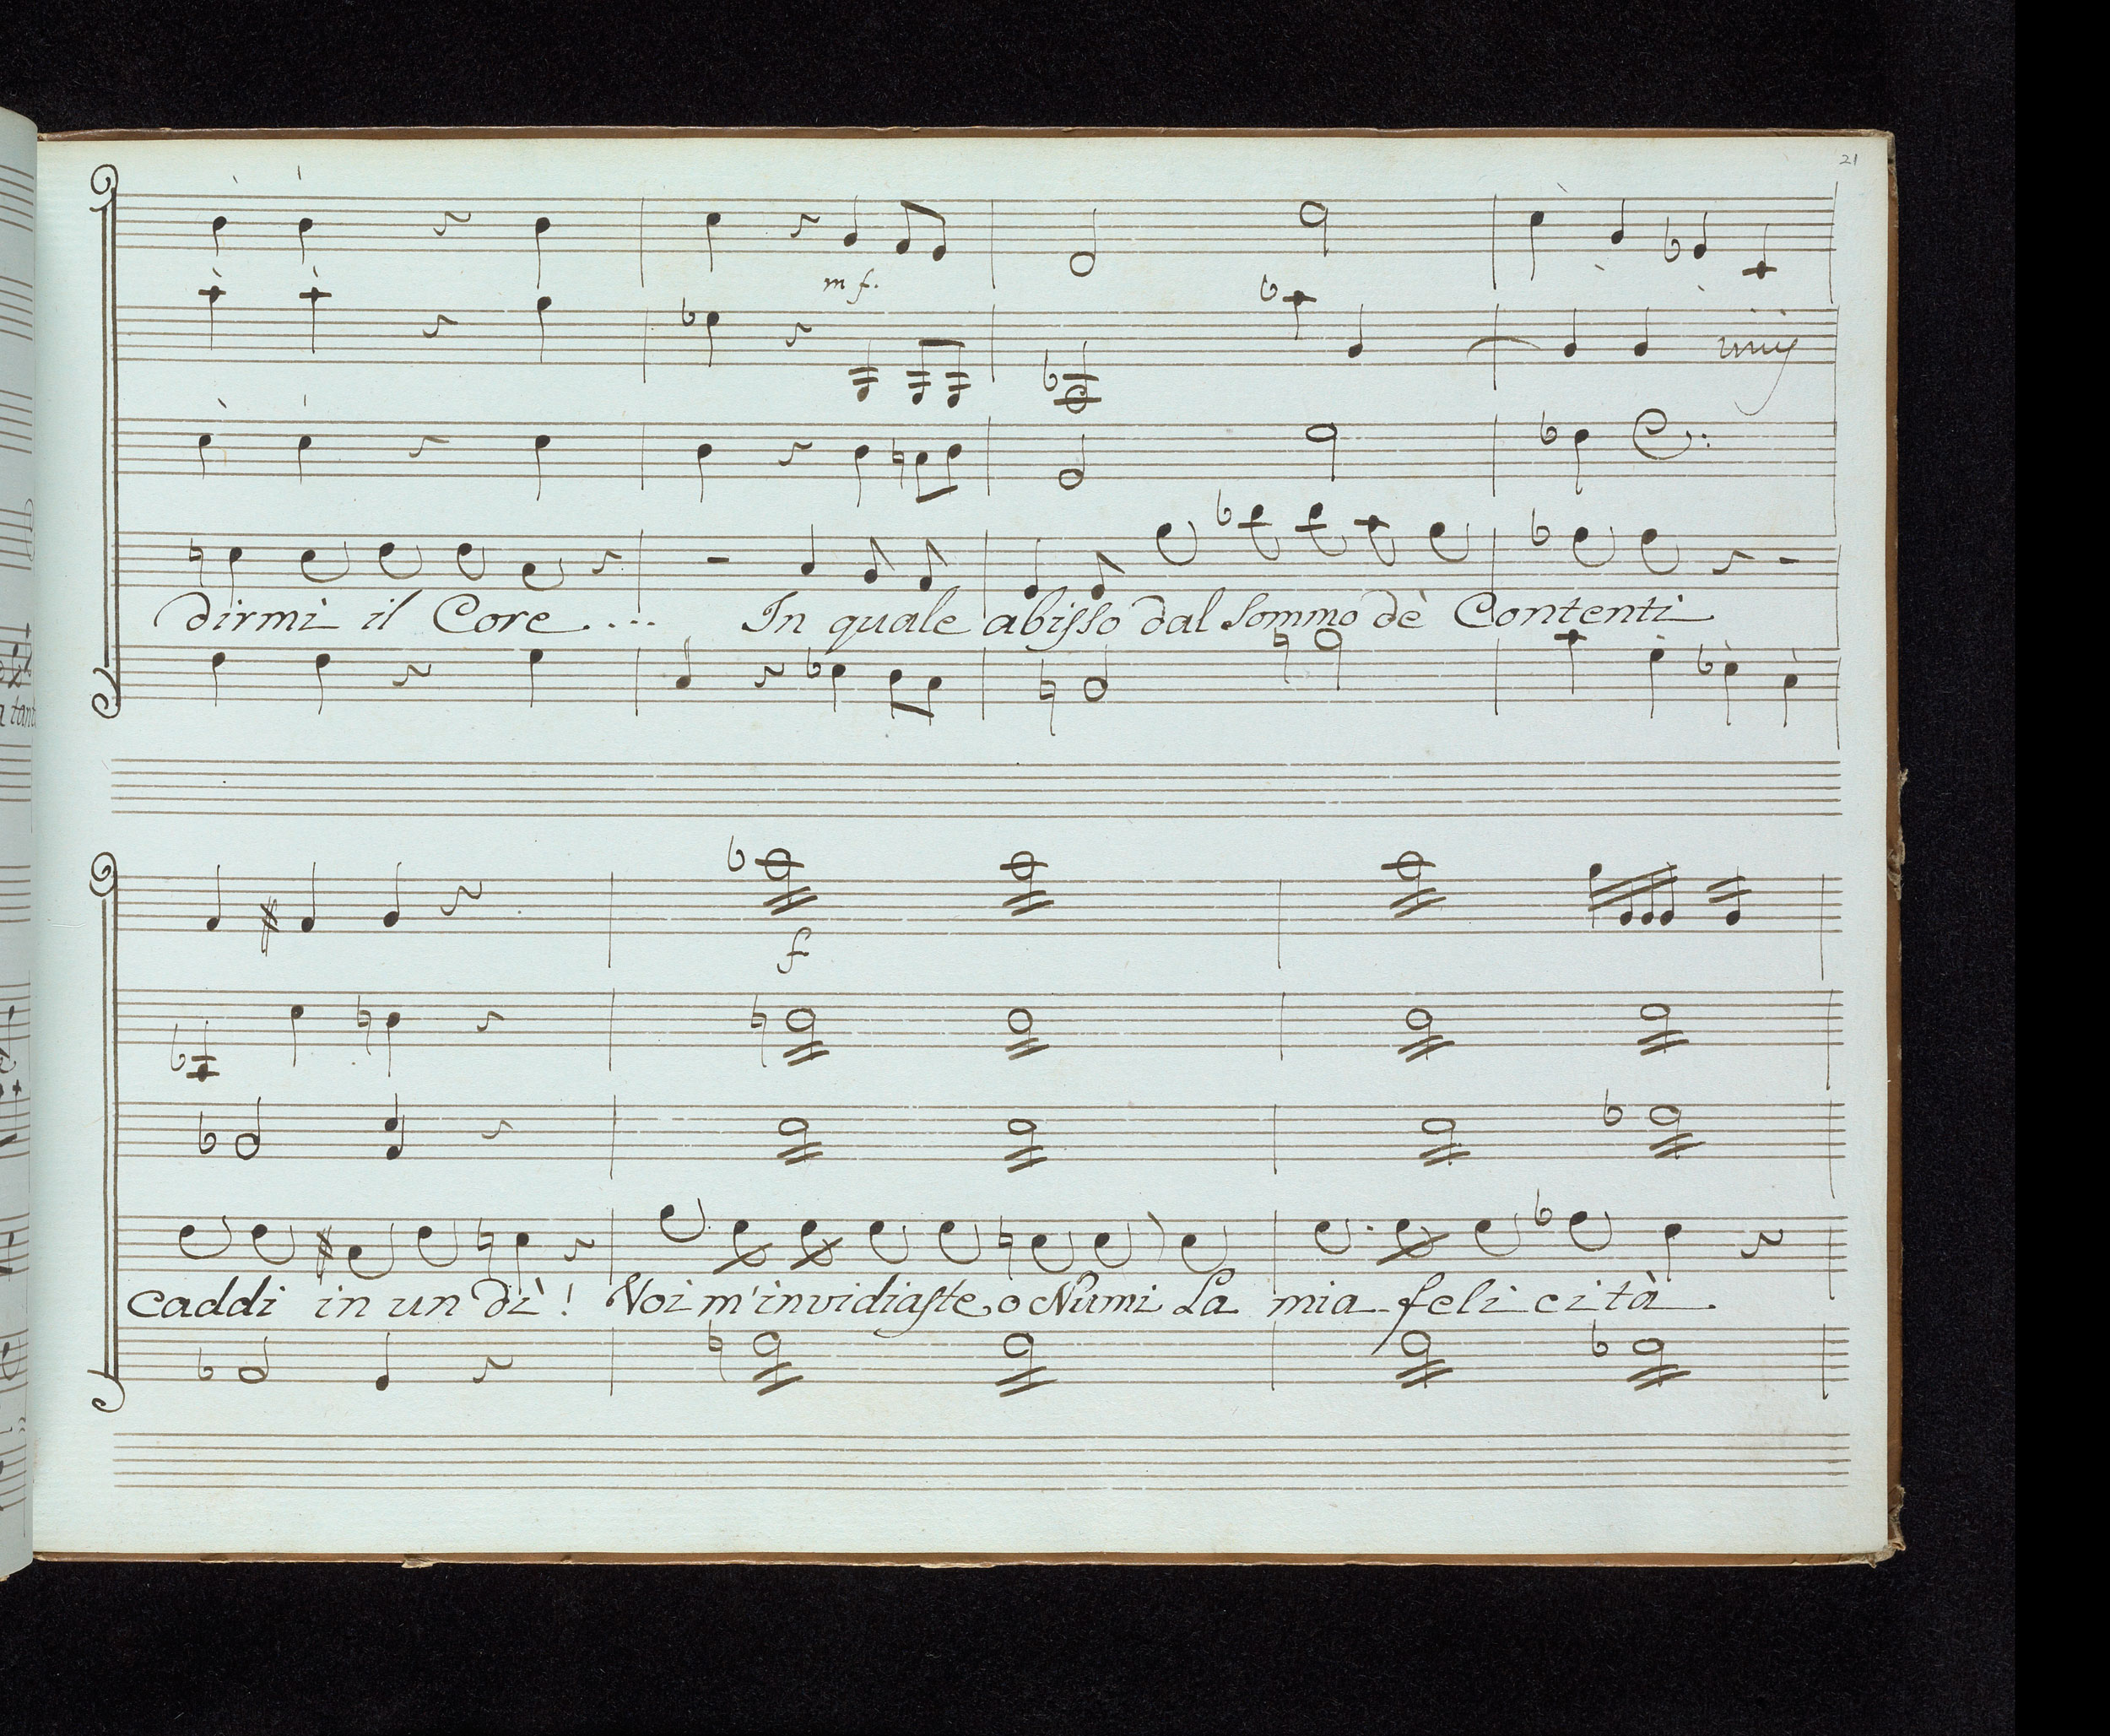 21
m f.
unis
dirmi il Core....  In quale abisso dal sommo dè Contenti
f
caddi in un dì! Voi m'invidiaste, o Numi La mia felicità.